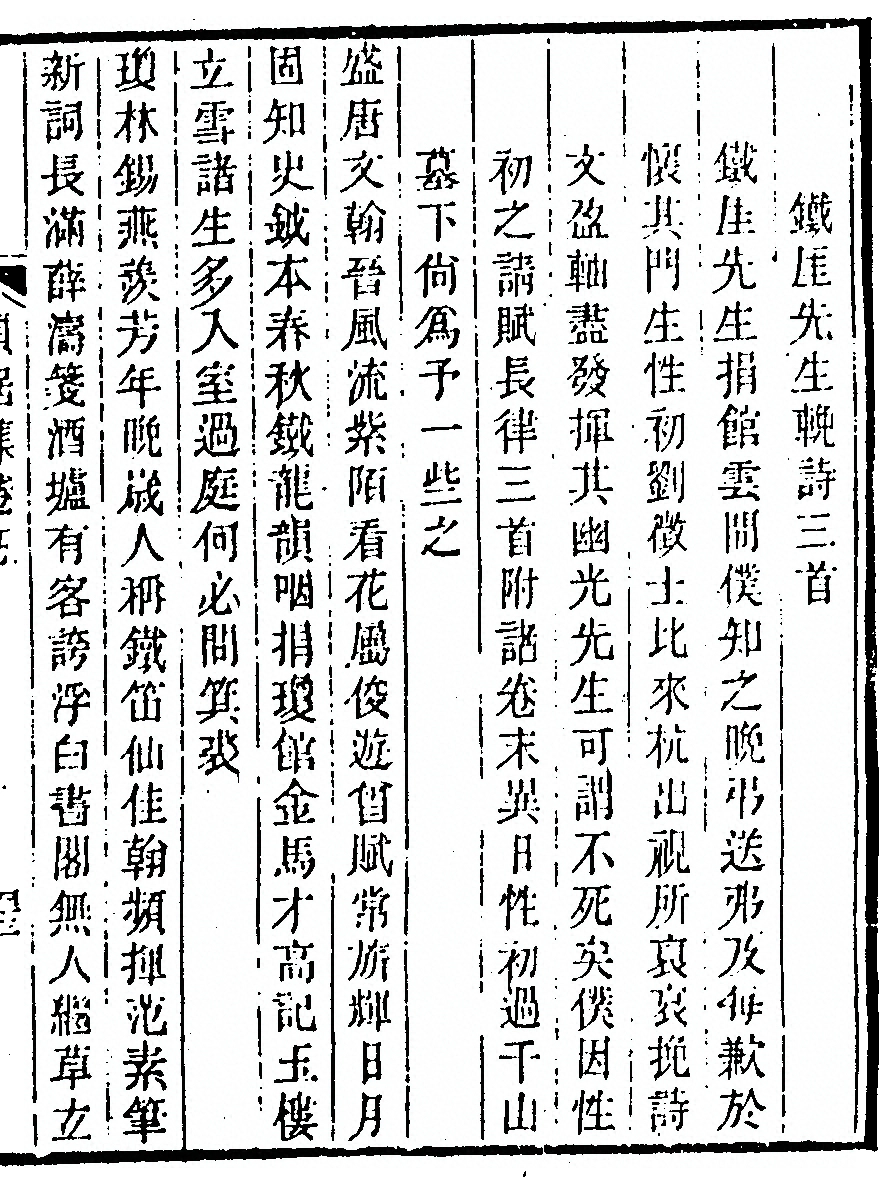 鐵厓先生輓詩三首
鐵厓先生捐館雲間僕知之晚弔送弗及每歉於
懷其門生性初劉徵士比來杭出視所裒衆挽詩
文盈軸盡發揮其幽光先生可謂不死矣僕因性
初之請賦長律三首附諸卷末異日性初過干山
墓下尙爲予一些之
盛唐文翰晉風流紫陌看花屬俊遊曾賦常旂輝日月
固知史鉞本春秋鐵龍韻咽捐瓊館金馬才高記玉樓
立雪諸生多入室過庭何必問箕裘
瓊林錫燕羨芳年晚歲人稱鐵笛仙佳翰頻揮范素筆
新詞長滿薛濤箋酒壚有客誇浮白書閣無人繼草玄